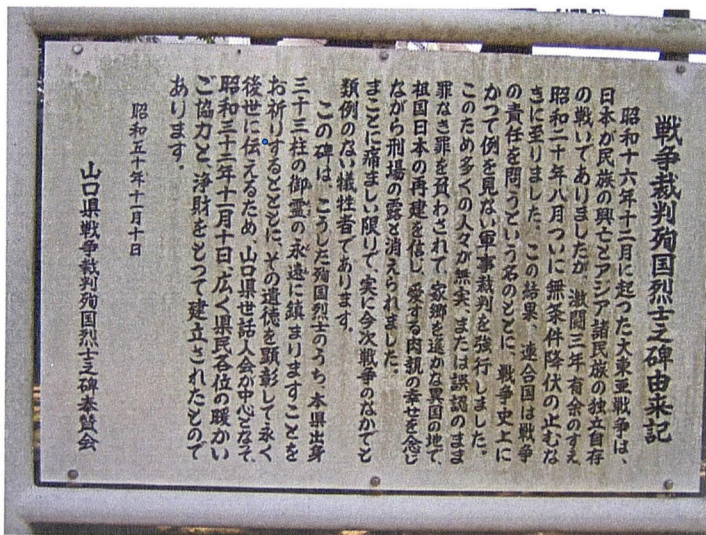 戦争裁判殉国烈士之碑由来記
昭和十六年十二月に起つた大東亜戦争は、
日本が民族の興亡とアジア諸民族の独立自存
の戦いでありましたが、激闘三年有余のすえ
昭和二十年八月ついに無条件降伏の止むな
きに至りました。この結果、連合国は戦争
の責任を問うという名のもとに、戦争史上に
かつて例を見ない軍事裁判を強行しました。
このため多くの人々が無実、または誤認のまま
罪なき罪を負わされて、家郷を遥かな異国の地で、
祖国日本の再建を信じ、愛する肉親の幸せを念じ
ながら刑場の露と消えられました。
まことに痛ましい限りで、実に今次戦争のなかでも
類例のない犠牲者であります。
この碑は、こうした殉国烈士のうち、本県出身
三十三柱の御霊の永遠に鎮まりますことを
お祈りするとともに、その遺徳を顕彰して永く
後世に伝えるため、山口県世話人会が中心となつて、
昭和三十三年十一月十日、広く県民各位の暖かい
ご協力と、浄財をもつて建立されたもので
あります。
昭和五十年十一月十日
山口県戦争裁判殉国烈士之碑奉賛会